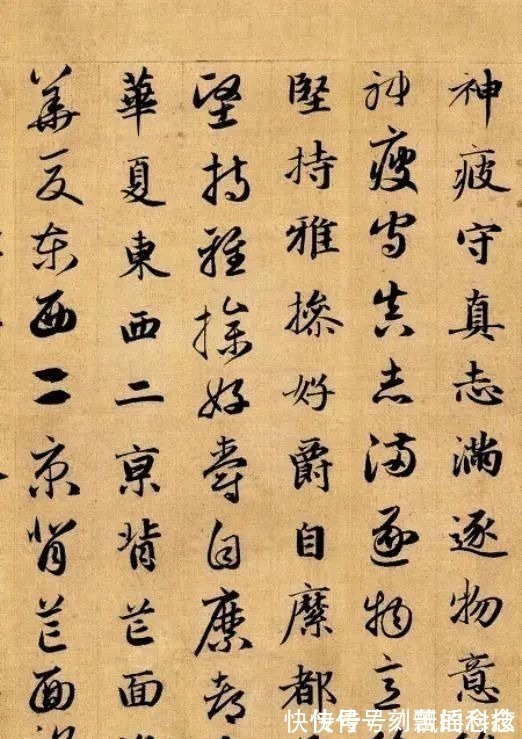 神疲守真志滿逐物意
神疲守真志滿逐物意
堅持雅操好爵自縻都
堅持雅操好爵自縻都
華夏東西二京背芒面
華夏東西二京背芒面